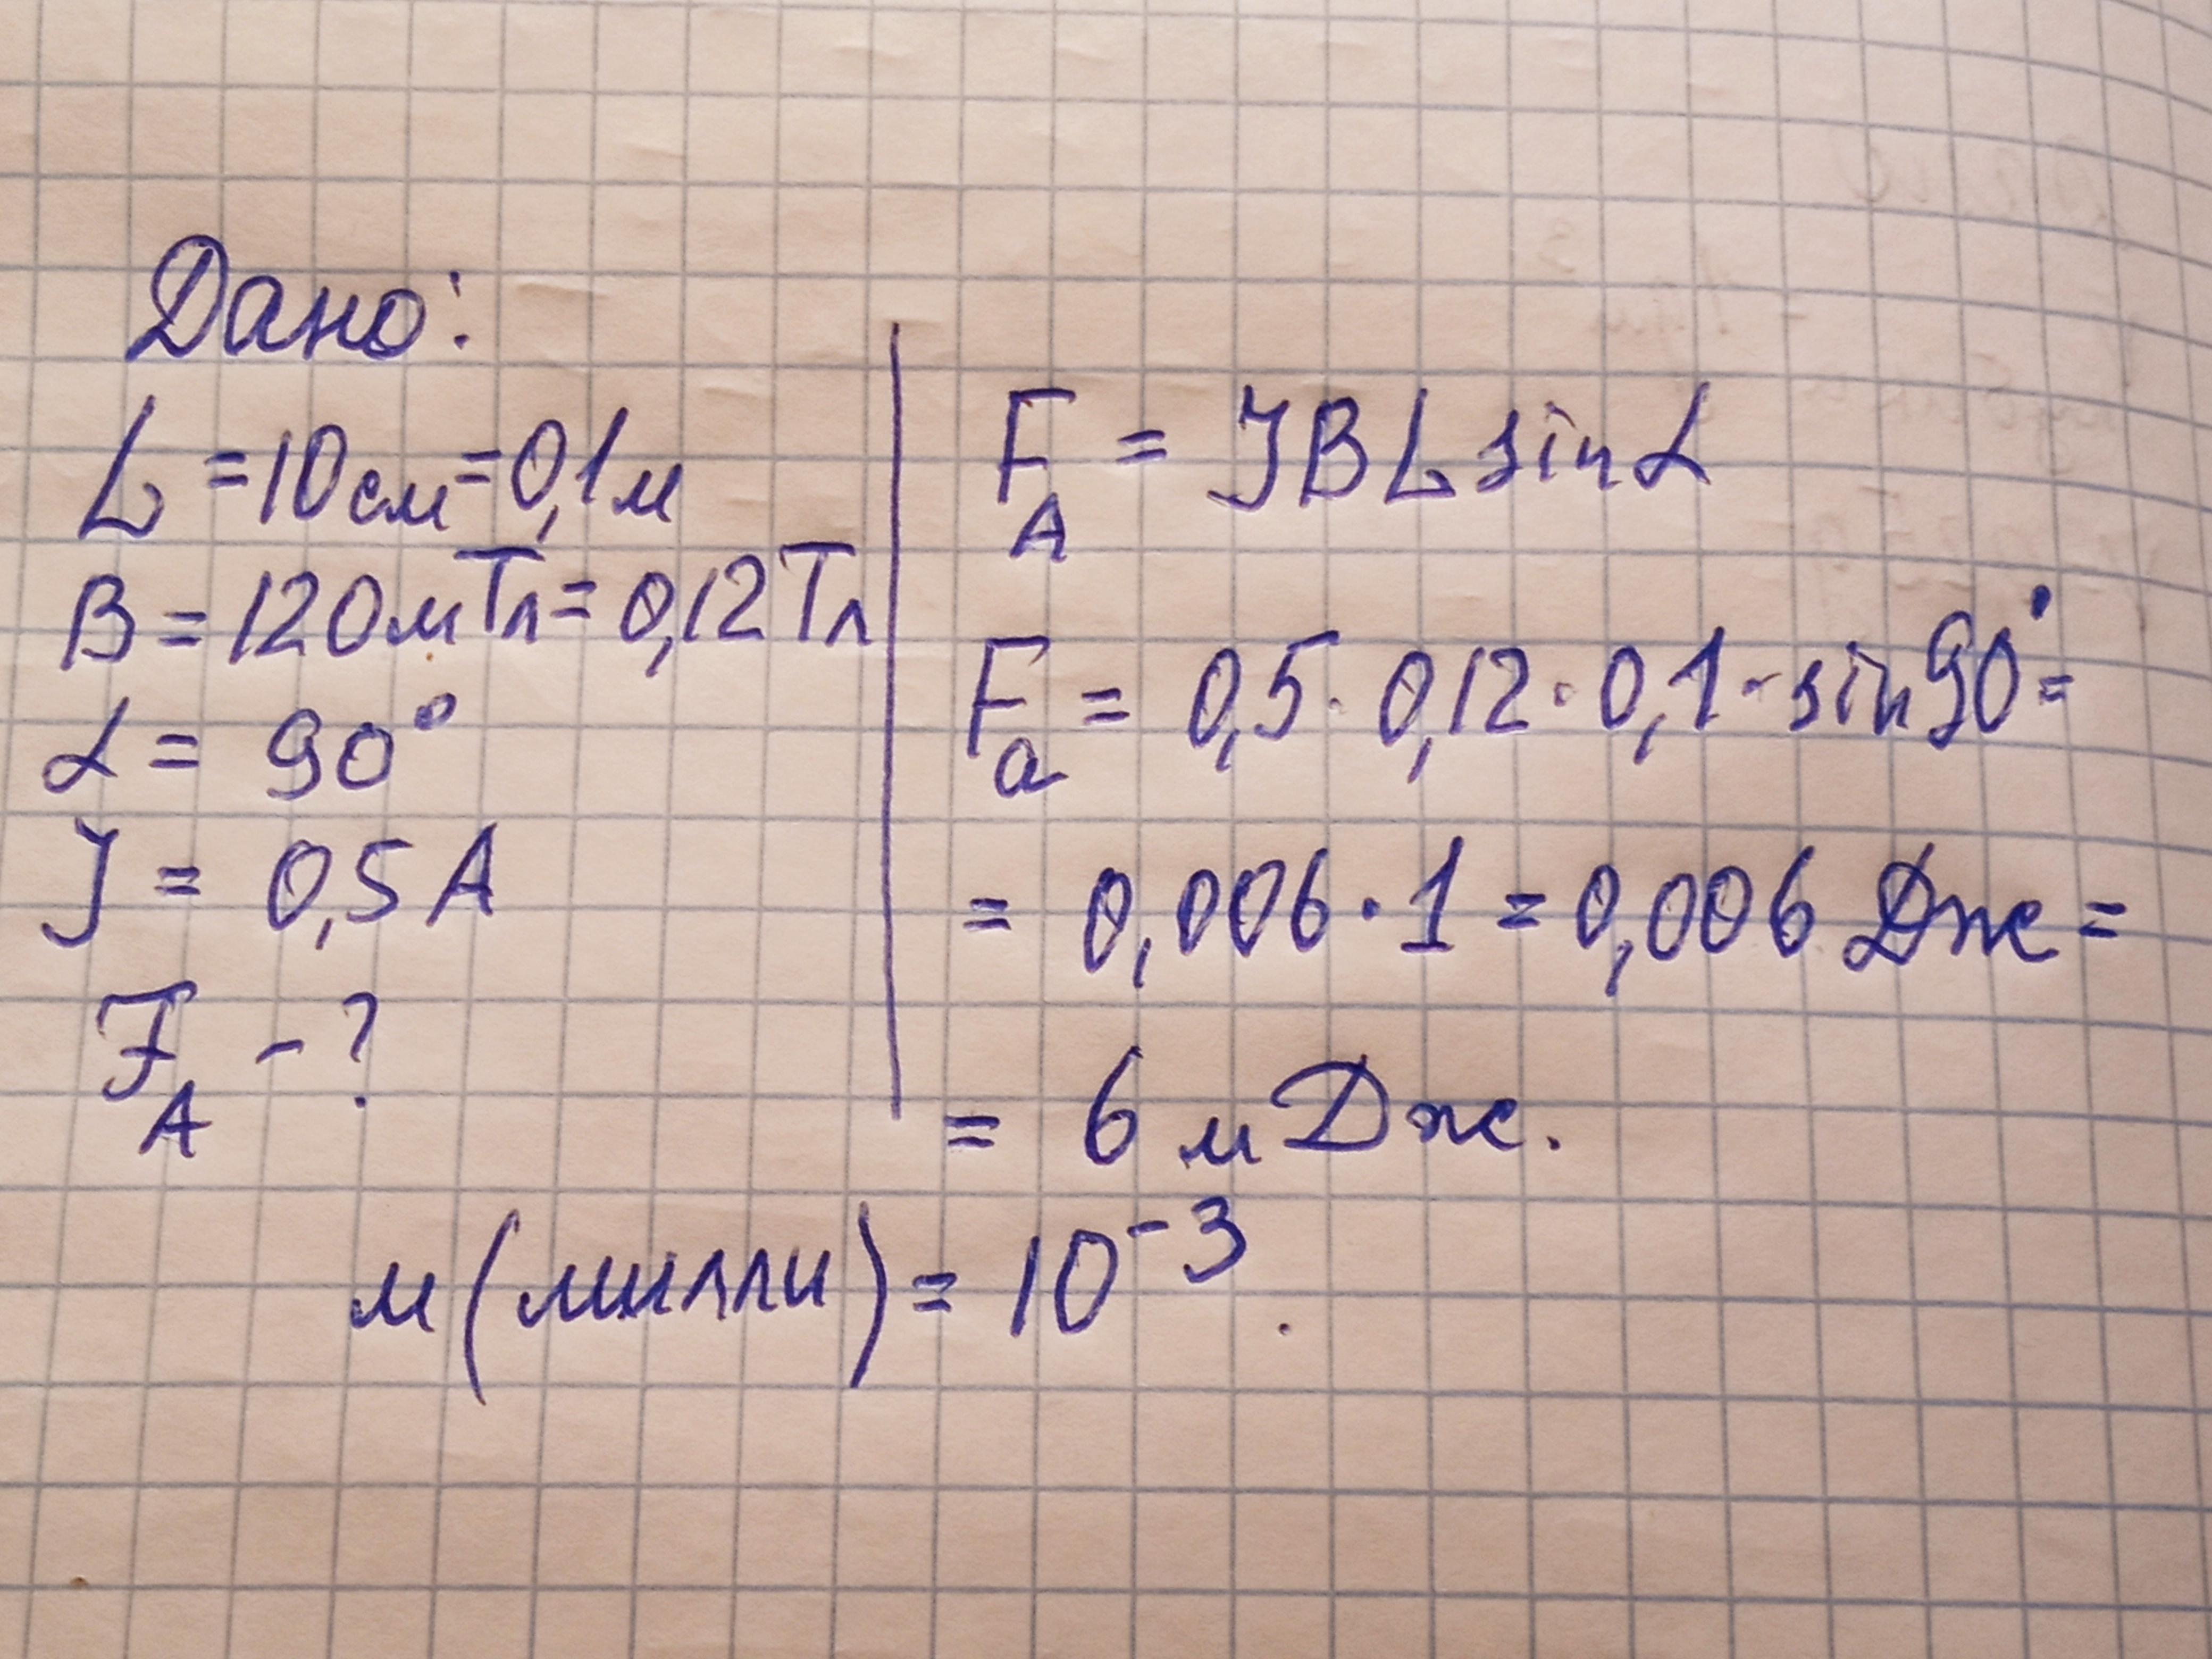 Дано:
L = 10 см = 0,1 м
B = 120 мТл = 0,12 Тл
α = 90°
J = 0,5 A
F_A - ?
F_A = JBL sin α
F_a = 0,5 · 0,12 · 0,1 · sin 90° =
= 0,006 · 1 = 0,006 Дж =
= 6 мДж.
м (милли) = 10⁻³.